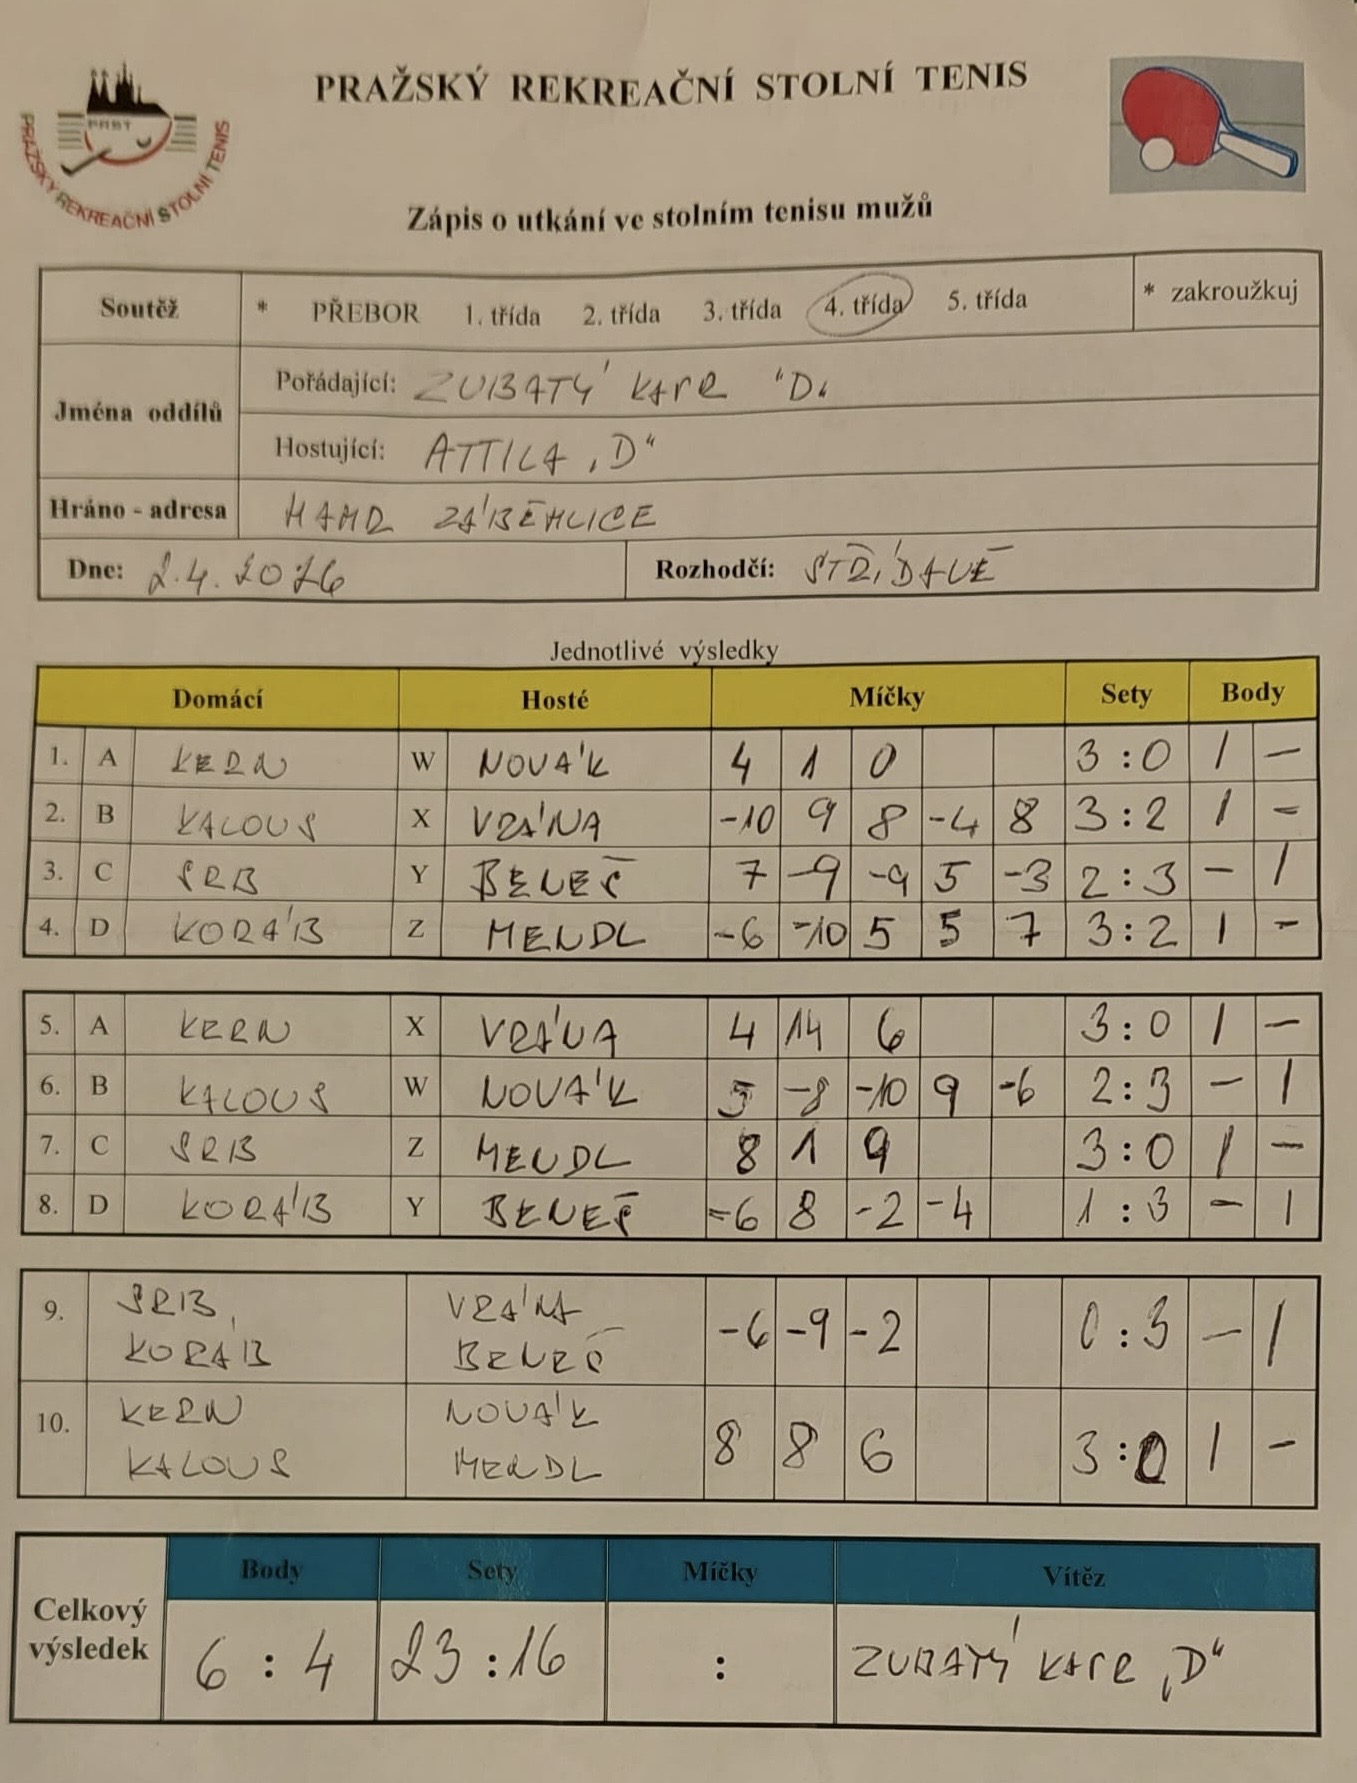 PRAŽSKÝ REKREAČNÍ STOLNÍ TENIS
PRST
PRAŽSKÝ REKREAČNÍ STOLNÍ TENIS
Zápis o utkání ve stolním tenisu mužů
Soutěž * PŘEBOR 1. třída 2. třída 3. třída 4. třída 5. třída * zakroužkuj
Jména oddílů
Pořádající: ZUBATÝ KAPR "D"
Hostující: ATTILA "D"
Hráno - adresa HAMR ZÁBĚHLICE
Dne: 2.4.2026 Rozhodčí: STŘÍDAVĚ
Jednotlivé výsledky
Domácí Hosté Míčky Sety Body
1. A KERN W NOVÁK 4 1 0 3:0 1 -
2. B KALOUS X VRÁNA -10 9 8 -4 8 3:2 1 -
3. C SRB Y BENEŠ 7 -9 -9 5 -3 2:3 - 1
4. D KORÁB Z MENDL -6 -10 5 5 7 3:2 1 -
5. A KERN X VRÁNA 4 14 6 3:0 1 -
6. B KALOUS W NOVÁK 5 -8 -10 9 -6 2:3 - 1
7. C SRB Z MENDL 8 1 9 3:0 1 -
8. D KORÁB Y BENEŠ -6 8 -2 -4 1:3 - 1
9. SRB, VRÁNA -6 -9 -2 0:3 - 1
KORÁB BENEŠ
10. KERN NOVÁK 8 8 6 3:0 1 -
KALOUS MENDL
Celkový výsledek
Body Sety Míčky Vítěz
6:4 23:16 : ZUBATÝ KAPR "D"